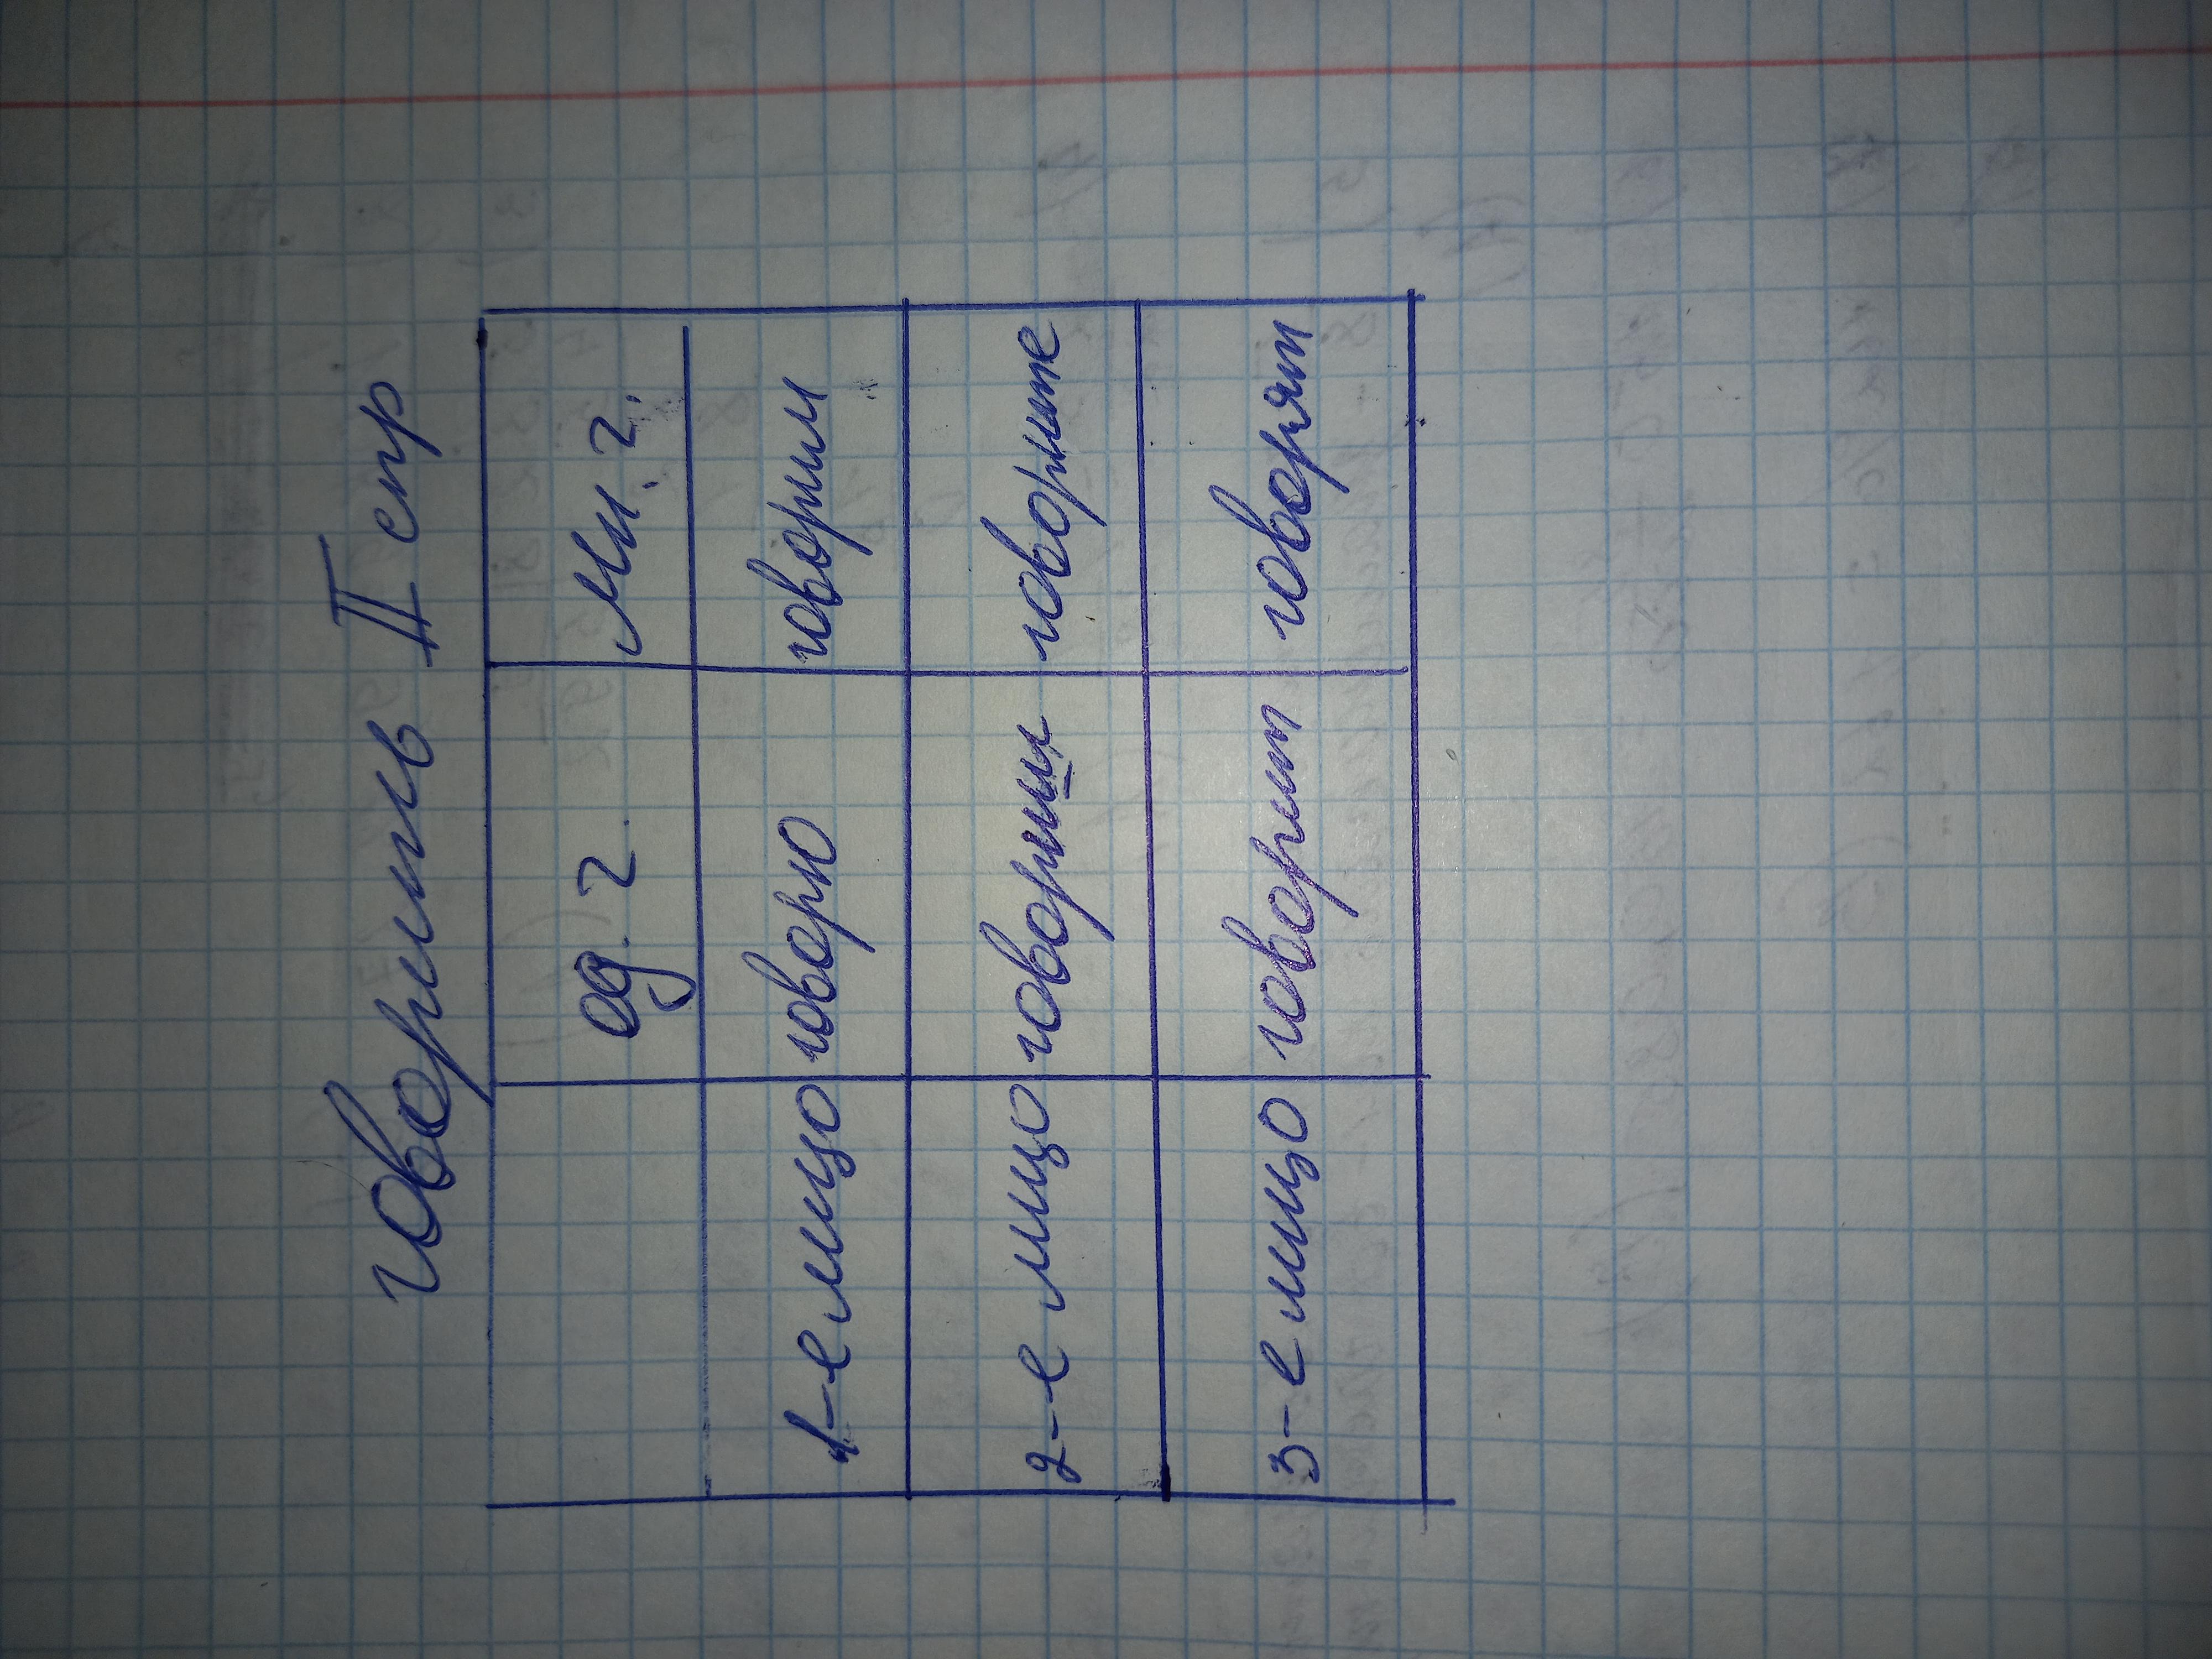 говорить II спр
ед. ч. мн. ч.
1-е лицо говорю говорим
2-е лицо говоришь говорите
3-е лицо говорит говорят